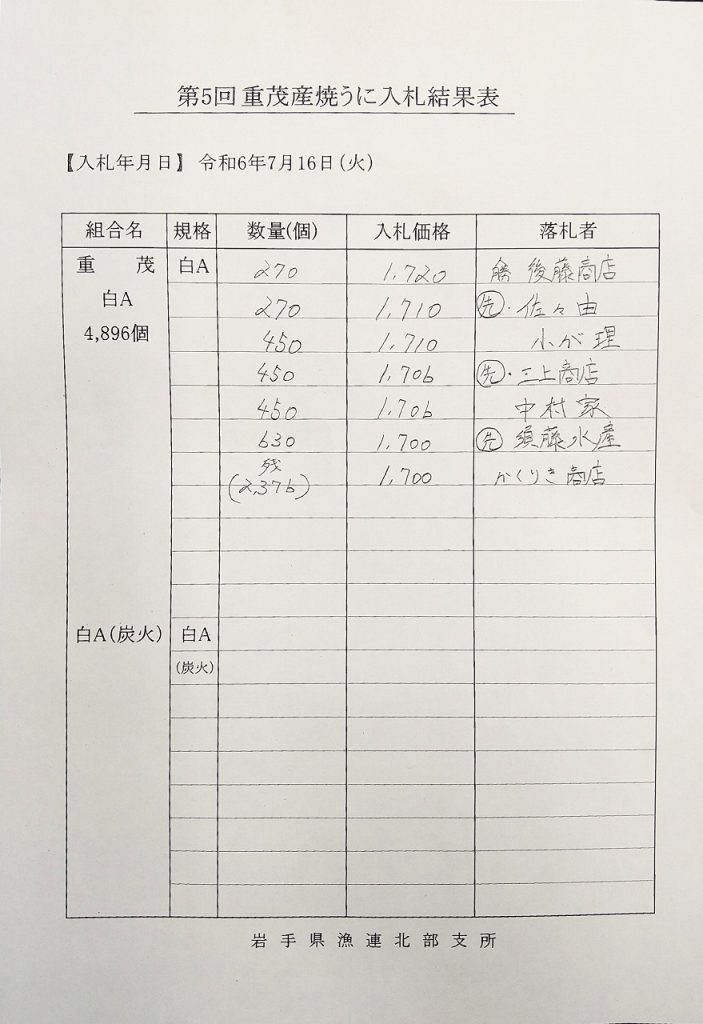 第5回 重茂産焼うに入札結果表
【入札年月日】 令和6年7月16日(火)
組合名 規格 数量(個) 入札価格 落札者
重 茂 白A 270 1,720 後藤商店
白A 270 1,710 ㊛・佐々由
4,896個 450 1,710 小が理
450 1,706 ・三上商店
450 1,706 中村家
630 1,700 須藤水産
残
(2,376) 1,700 かくりき商店
白A(炭火) 白A
(炭火)
岩手県漁連北部支所